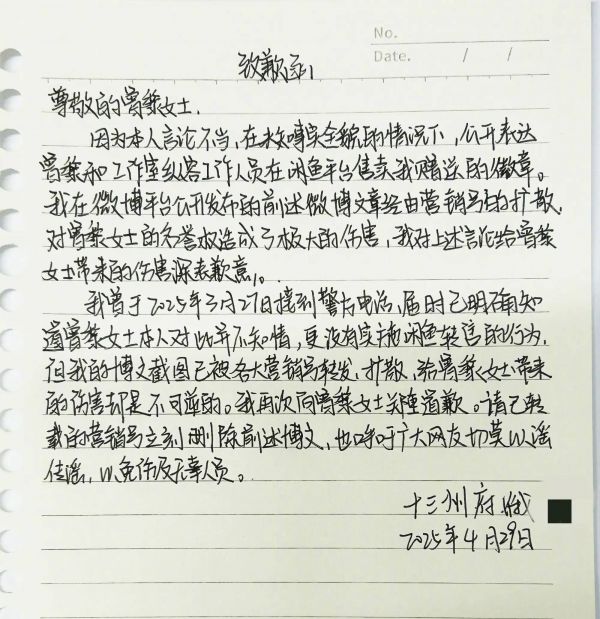 No.
Date. / /
致歉函
尊敬的曾黎女士.
因为本人言论不当,在未知晓实全貌的情况下,公开表达
曾黎和工作室纵容工作人员在闲鱼平台售卖我赠送的徽章。
我在微博平台公开发布的前述微博文章经由营销号的扩散,
对曾黎女士的名誉权造成了极大的伤害,我对上述言论给曾黎
女士带来的伤害深表歉意。
我曾于2025年3月27日接到警方电话,届时已明确知
道曾黎女士本人对此并不知情,更没有实施闲鱼转售的行为,
但我的博文截图已被各大营销号转发、扩散,给曾黎女士带来
的伤害却是不可逆的。我再次向曾黎女士郑重道歉。请已转
载的营销号立刻删除前述博文,也呼吁广大网友切莫以谣
传谣,以免伤及无辜人员。
十三州府
2025年4月29日